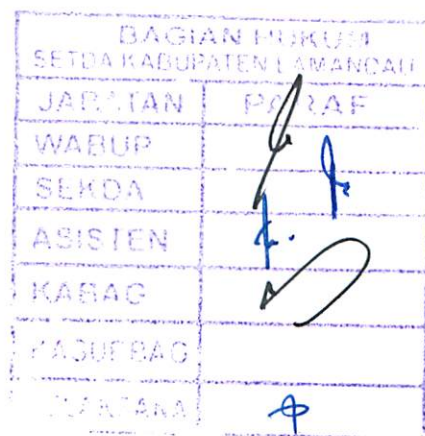 BAGIAN HUKUM
SETDA KABUPATEN LAMANDAU
JABATAN PARAF
WABUP
SEKDA
ASISTEN
KABAG
KASUBBAG